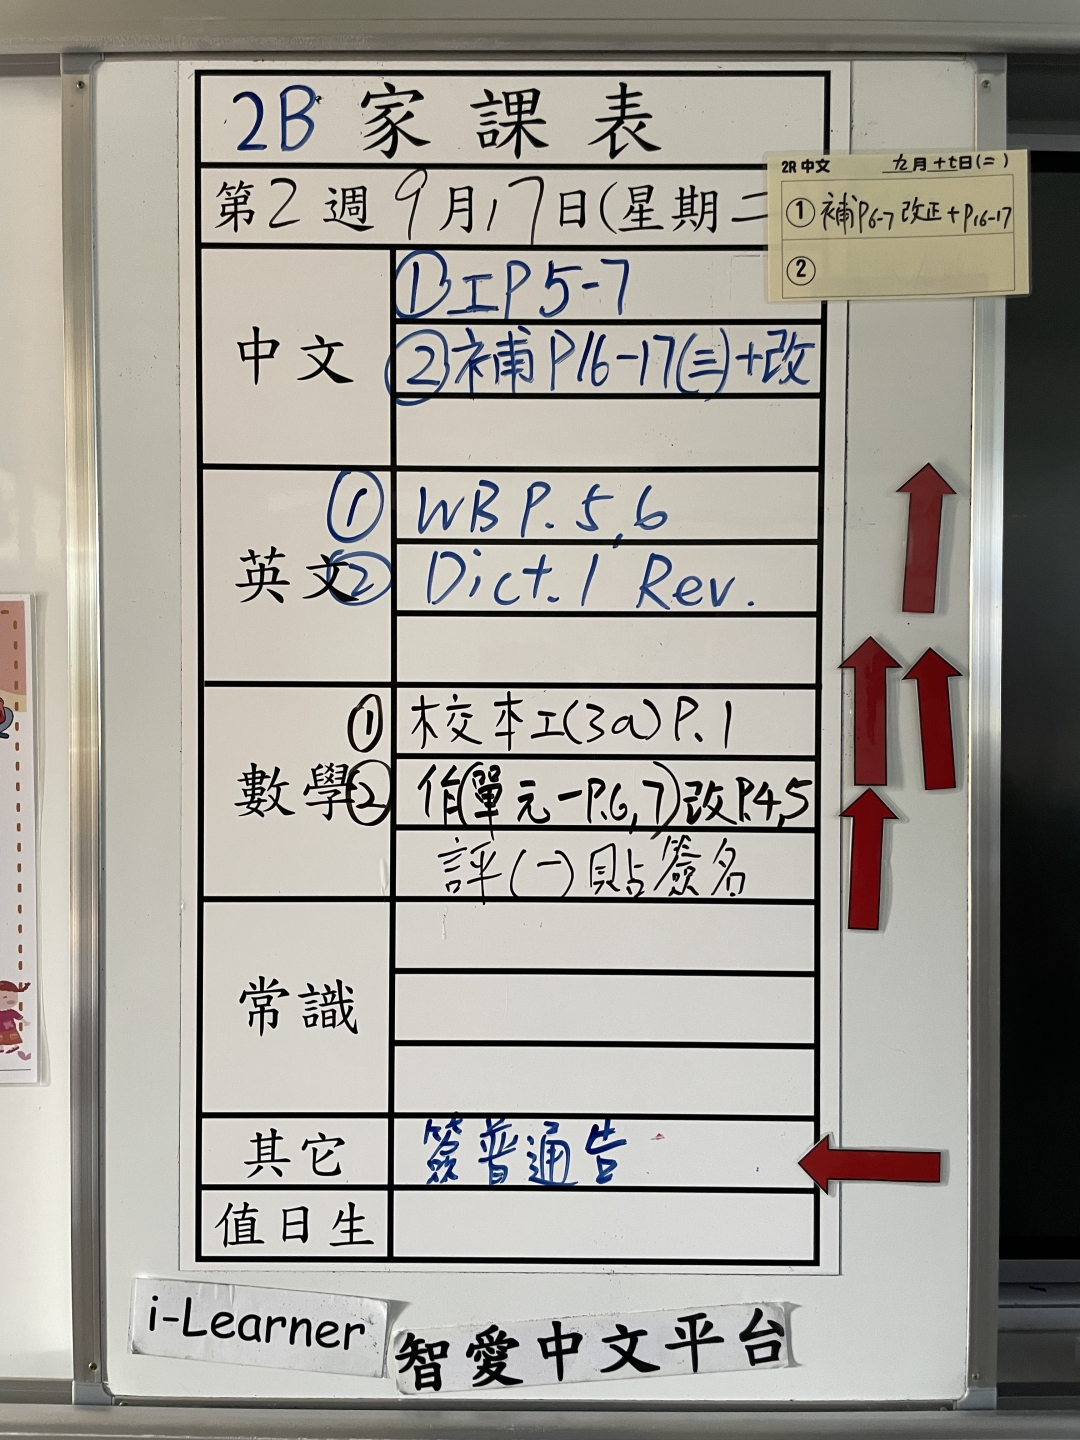 2B 家課表
第2週9月17日(星期二
2R 中文 九月十七日(二)
① 補P6-7 改正+P16-17
②
中文
①工P5-7
②補P16-17(三)+改
英文
① WB P. 5,6
② Dict. 1 Rev.
數學
① 校本工(3a)P.1
② 作(單元一P.6,7)改P.4,5
評(一)貼簽名
常識
其它
簽普通告
值日生
i-Learner
智愛中文平台